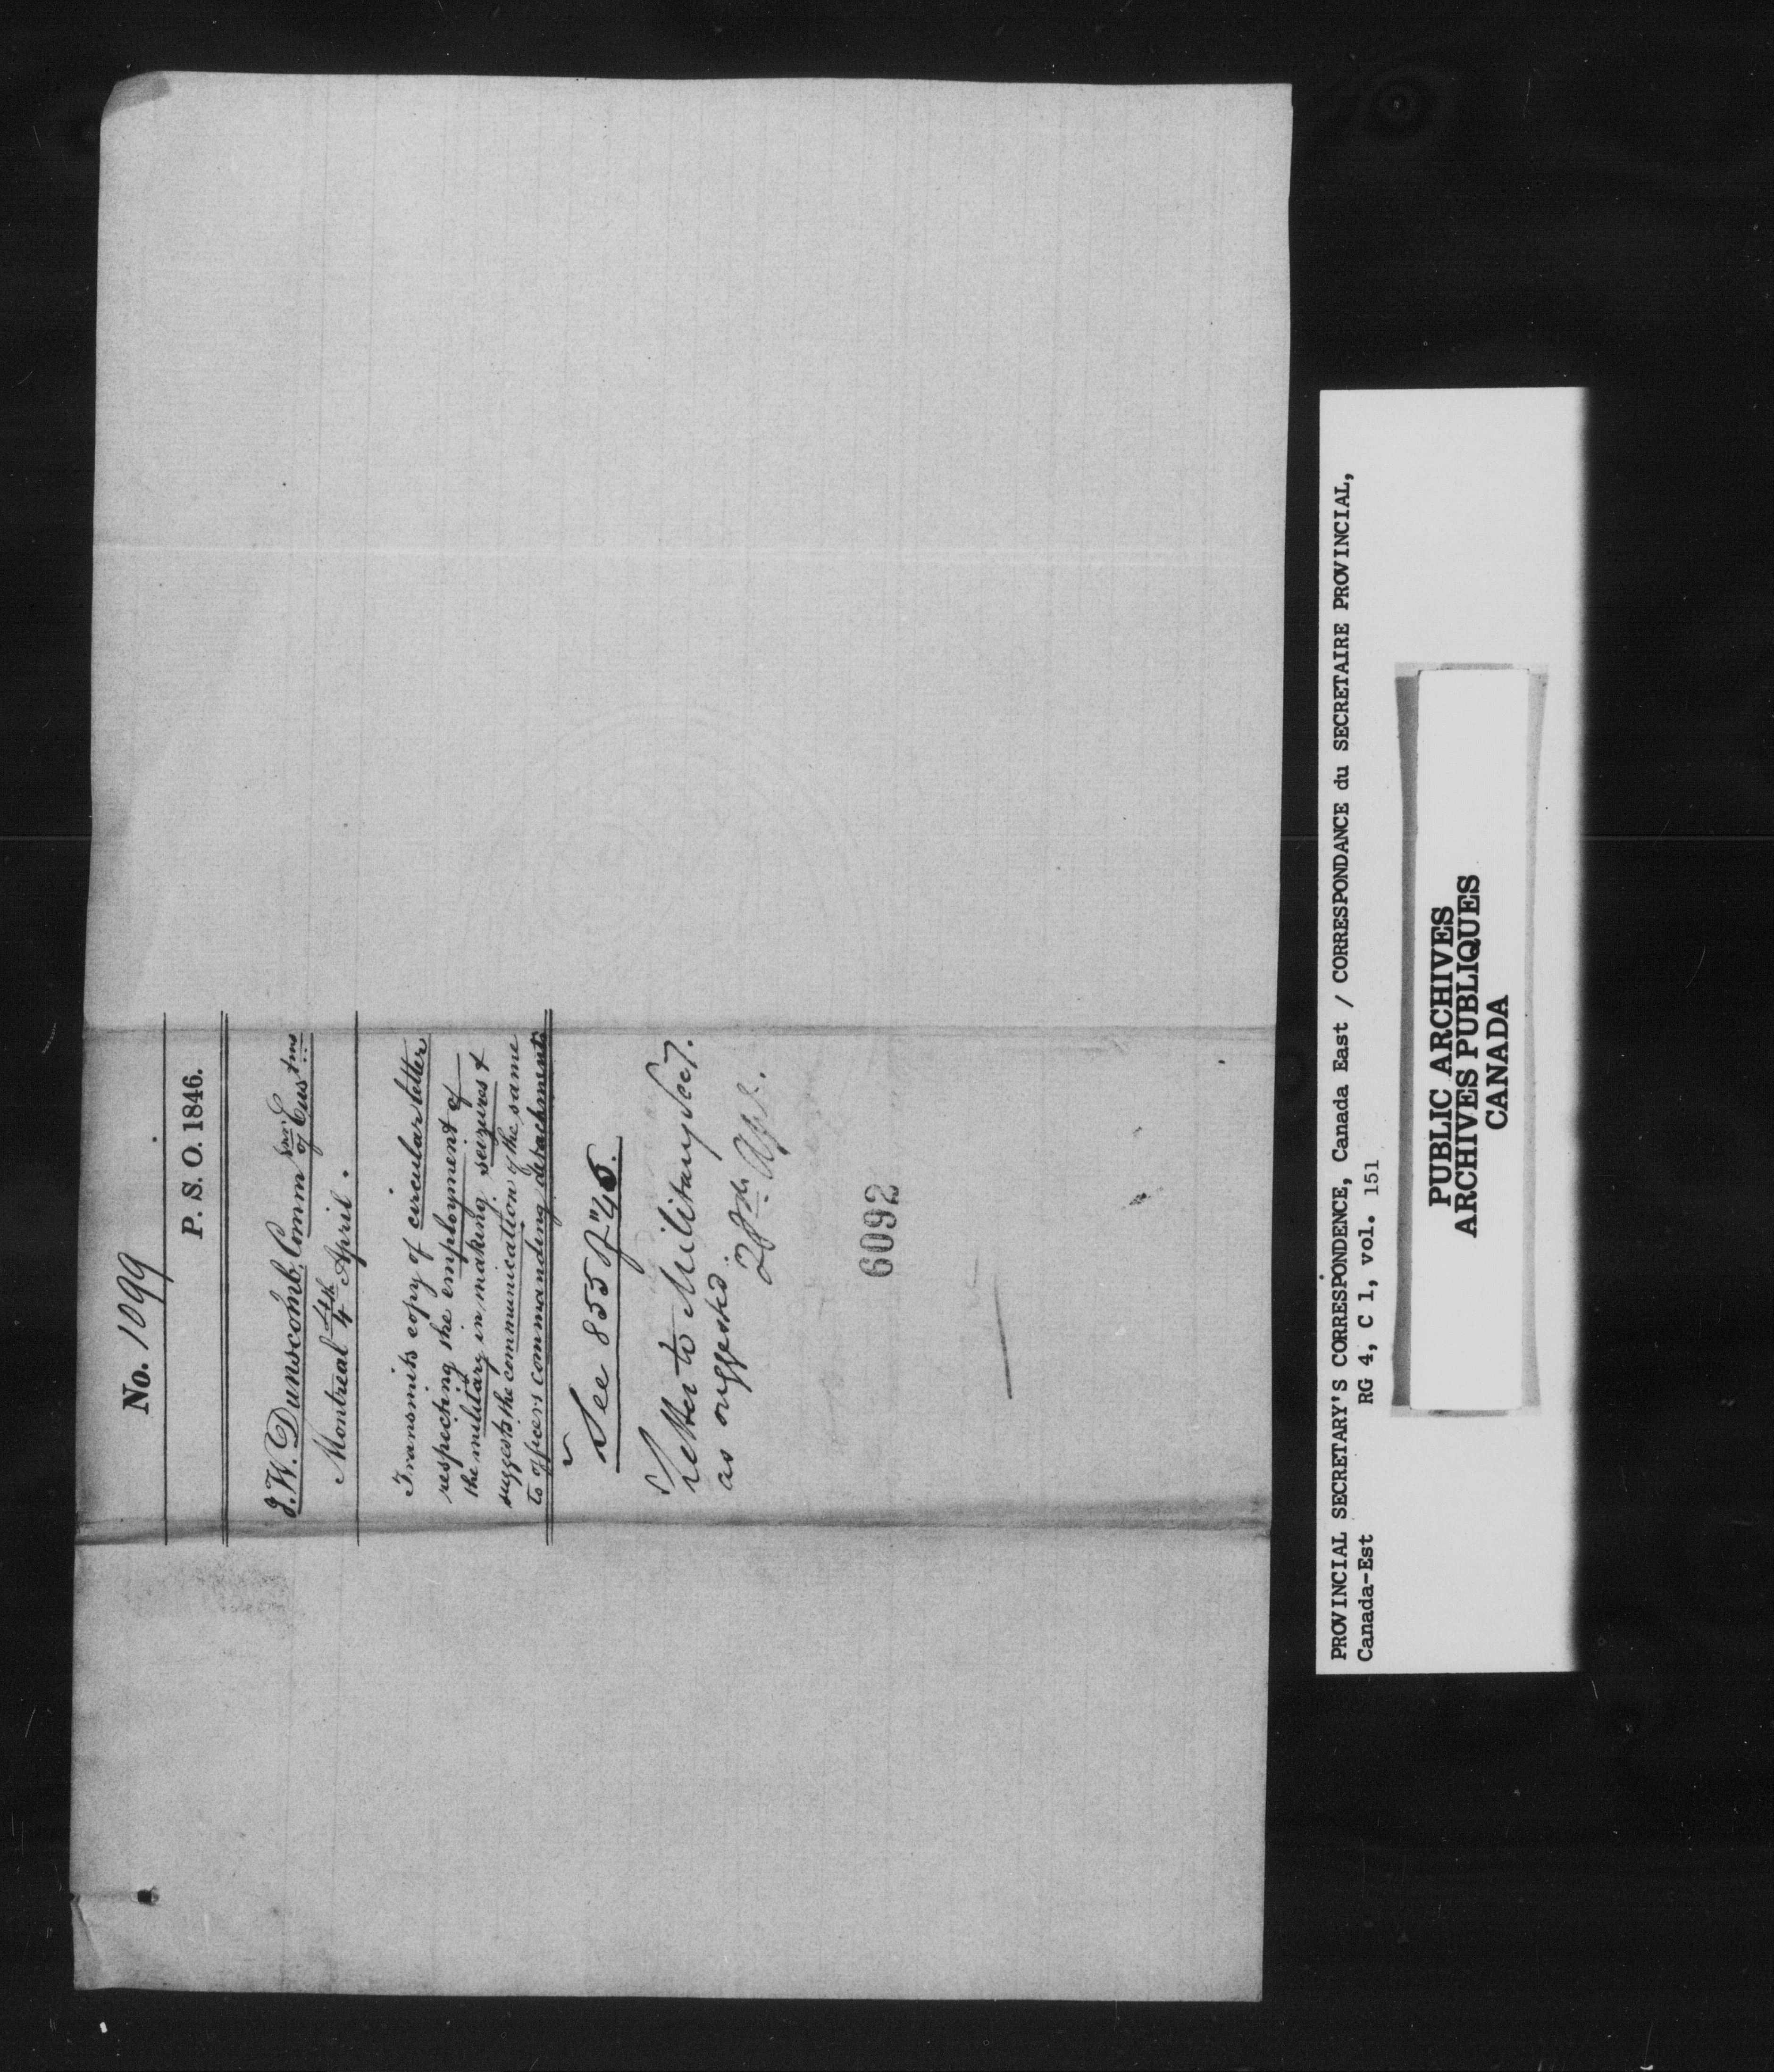 No. 1099
P. S. O. 1846.
J. W. Dunscomb, Comm^{sr} of Cus^{tms}
Montreal 4^{th} April.
Transmits copy of circular letter
respecting the employment of
the military in making seizures &
suggests the communication of the same
to officers commanding detachments
See 855 of "45.
Letter to Military Secy.
as suggested.
28th Apl.
6092
PROVINCIAL SECRETARY'S CORRESPONDENCE, Canada East / CORRESPONDANCE du SECRETAIRE PROVINCIAL,
Canada-Est RG 4, C 1, vol. 151
PUBLIC ARCHIVES
ARCHIVES PUBLIQUES
CANADA